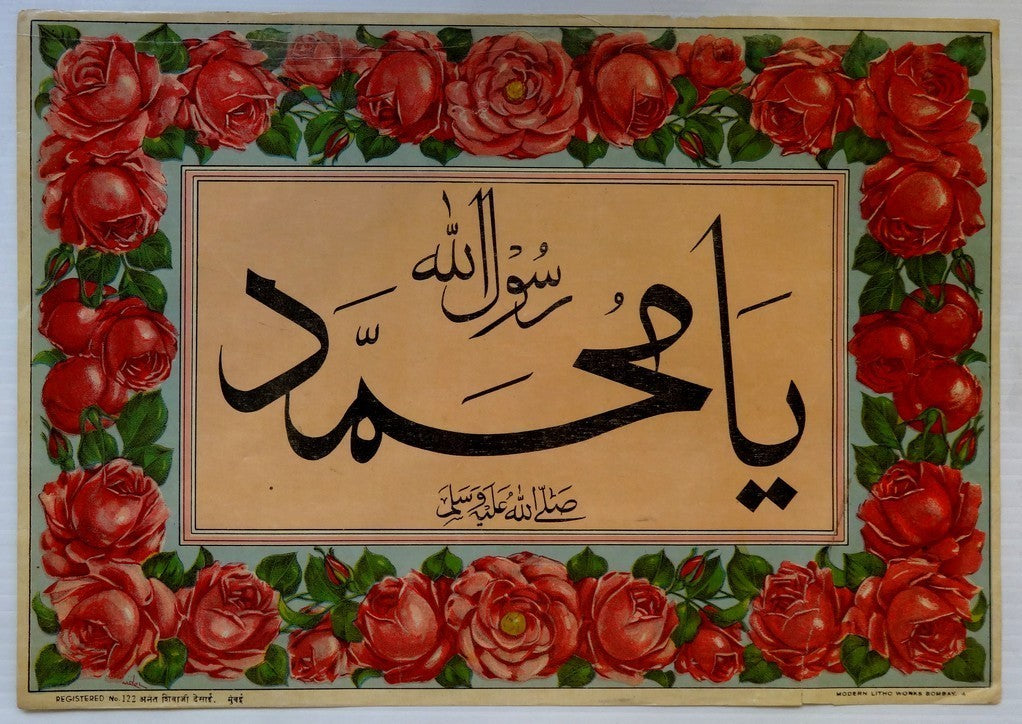 رسول الله
يا محمد
صلى الله عليه وسلم
REGISTERED No. 122 अनंत शिवाजी देसाई. मुंबई
MODERN LITHO WORKS BOMBAY. 4